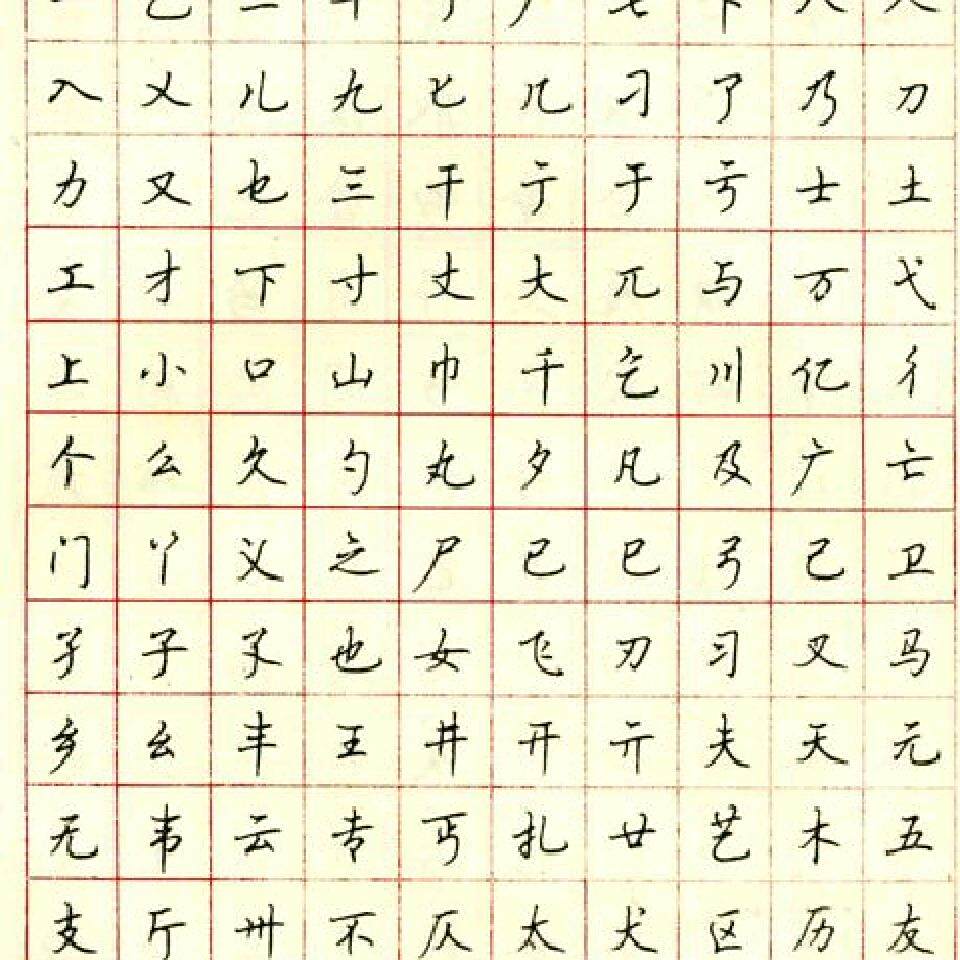 入 乂 儿 九 匕 几 刁 了 乃 刀
力 又 乜 三 干 亍 于 亏 士 土
工 才 下 寸 丈 大 兀 与 万 弋
上 小 口 山 巾 千 乞 川 亿 彳
个 么 久 勺 丸 夕 凡 及 广 亡
门 丫 义 之 尸 已 巳 弓 己 卫
孑 子 孓 也 女 飞 刃 习 叉 马
乡 幺 丰 王 井 开 亓 夫 天 元
无 韦 云 专 丐 扎 廿 艺 木 五
支 厅 卅 不 仄 太 犬 区 历 友